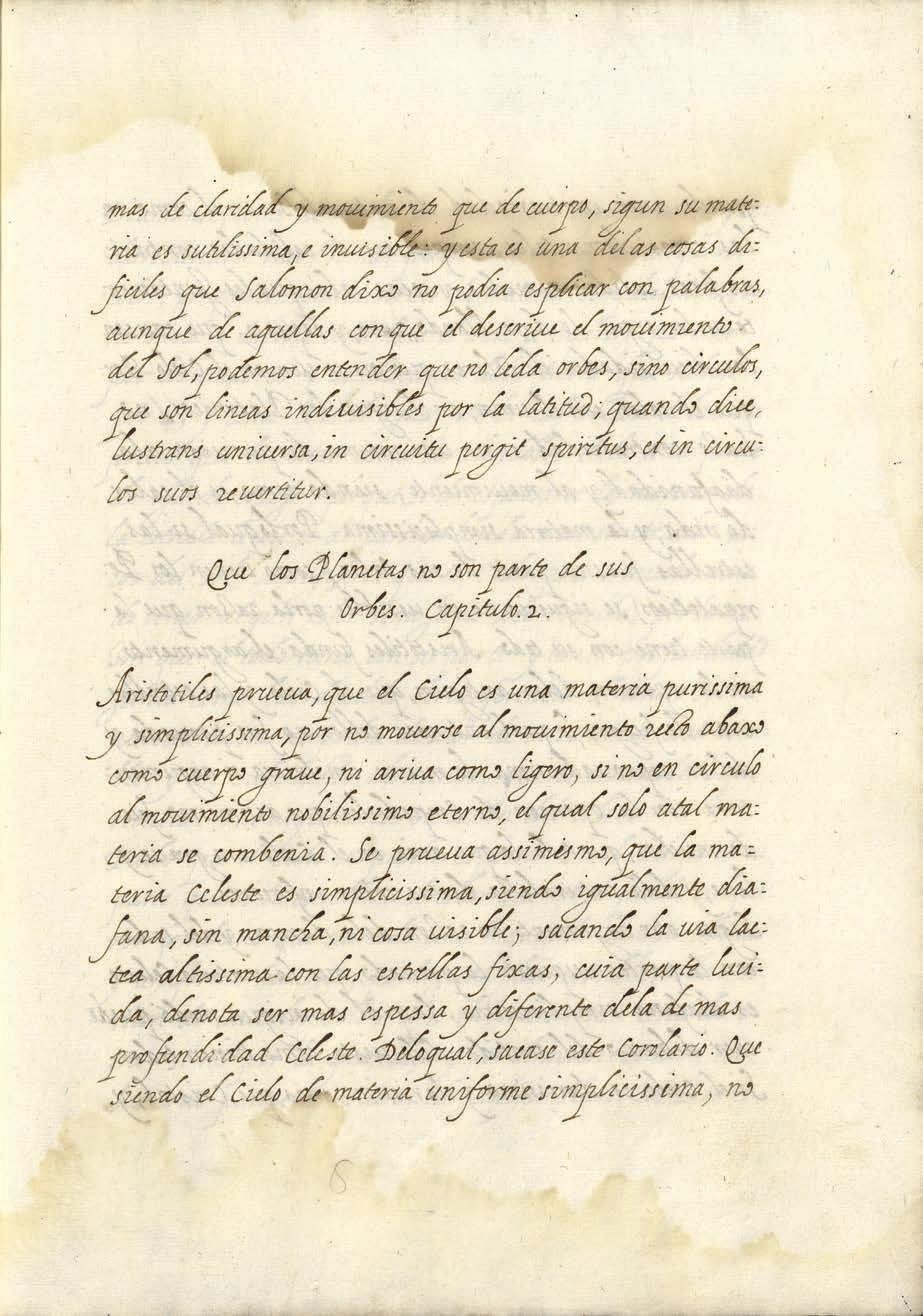 mas de claridad y mouimiento que de cuerpo, sigun su mate:
ria es sutilissima, e inuisible: y esta es una delas cosas di:
ficiles que Salomon dixo no podia esplicar con palabras,
aunque de aquellas con que el descriue el mouimiento
del Sol, podemos entender que no leda orbes, sino circulos,
que son lineas indiuisibles por la latitud; quando dice,
lustrans uniuersa, in circuitu pergit spiritus, et in circu:
los suos reuertitur.
Que los Planetas no son parte de sus
Orbes. Capitulo. 2.
Aristotiles prueua, que el Cielo es una materia purissima
y simplicissima, por no mouerse al mouimiento recto abaxo
como cuerpo graue, ni ariua como ligero, si no en circulo
al mouimiento nobilissimo eterno, el qual solo atal ma:
teria se combenia. Se prueua assimesmo, que la ma=
teria Celeste es simplicissima, siendo igualmente dia:
fana, sin mancha, ni cosa uisible; sacando la uia lac:
tea altissima con las estrellas fixas, cuia parte luci:
da, denota ser mas espessa y diferente dela de mas
profundidad Celeste. Deloqual, sacase este Corolario. Que
siendo el Cielo de materia uniforme simplicissima, no